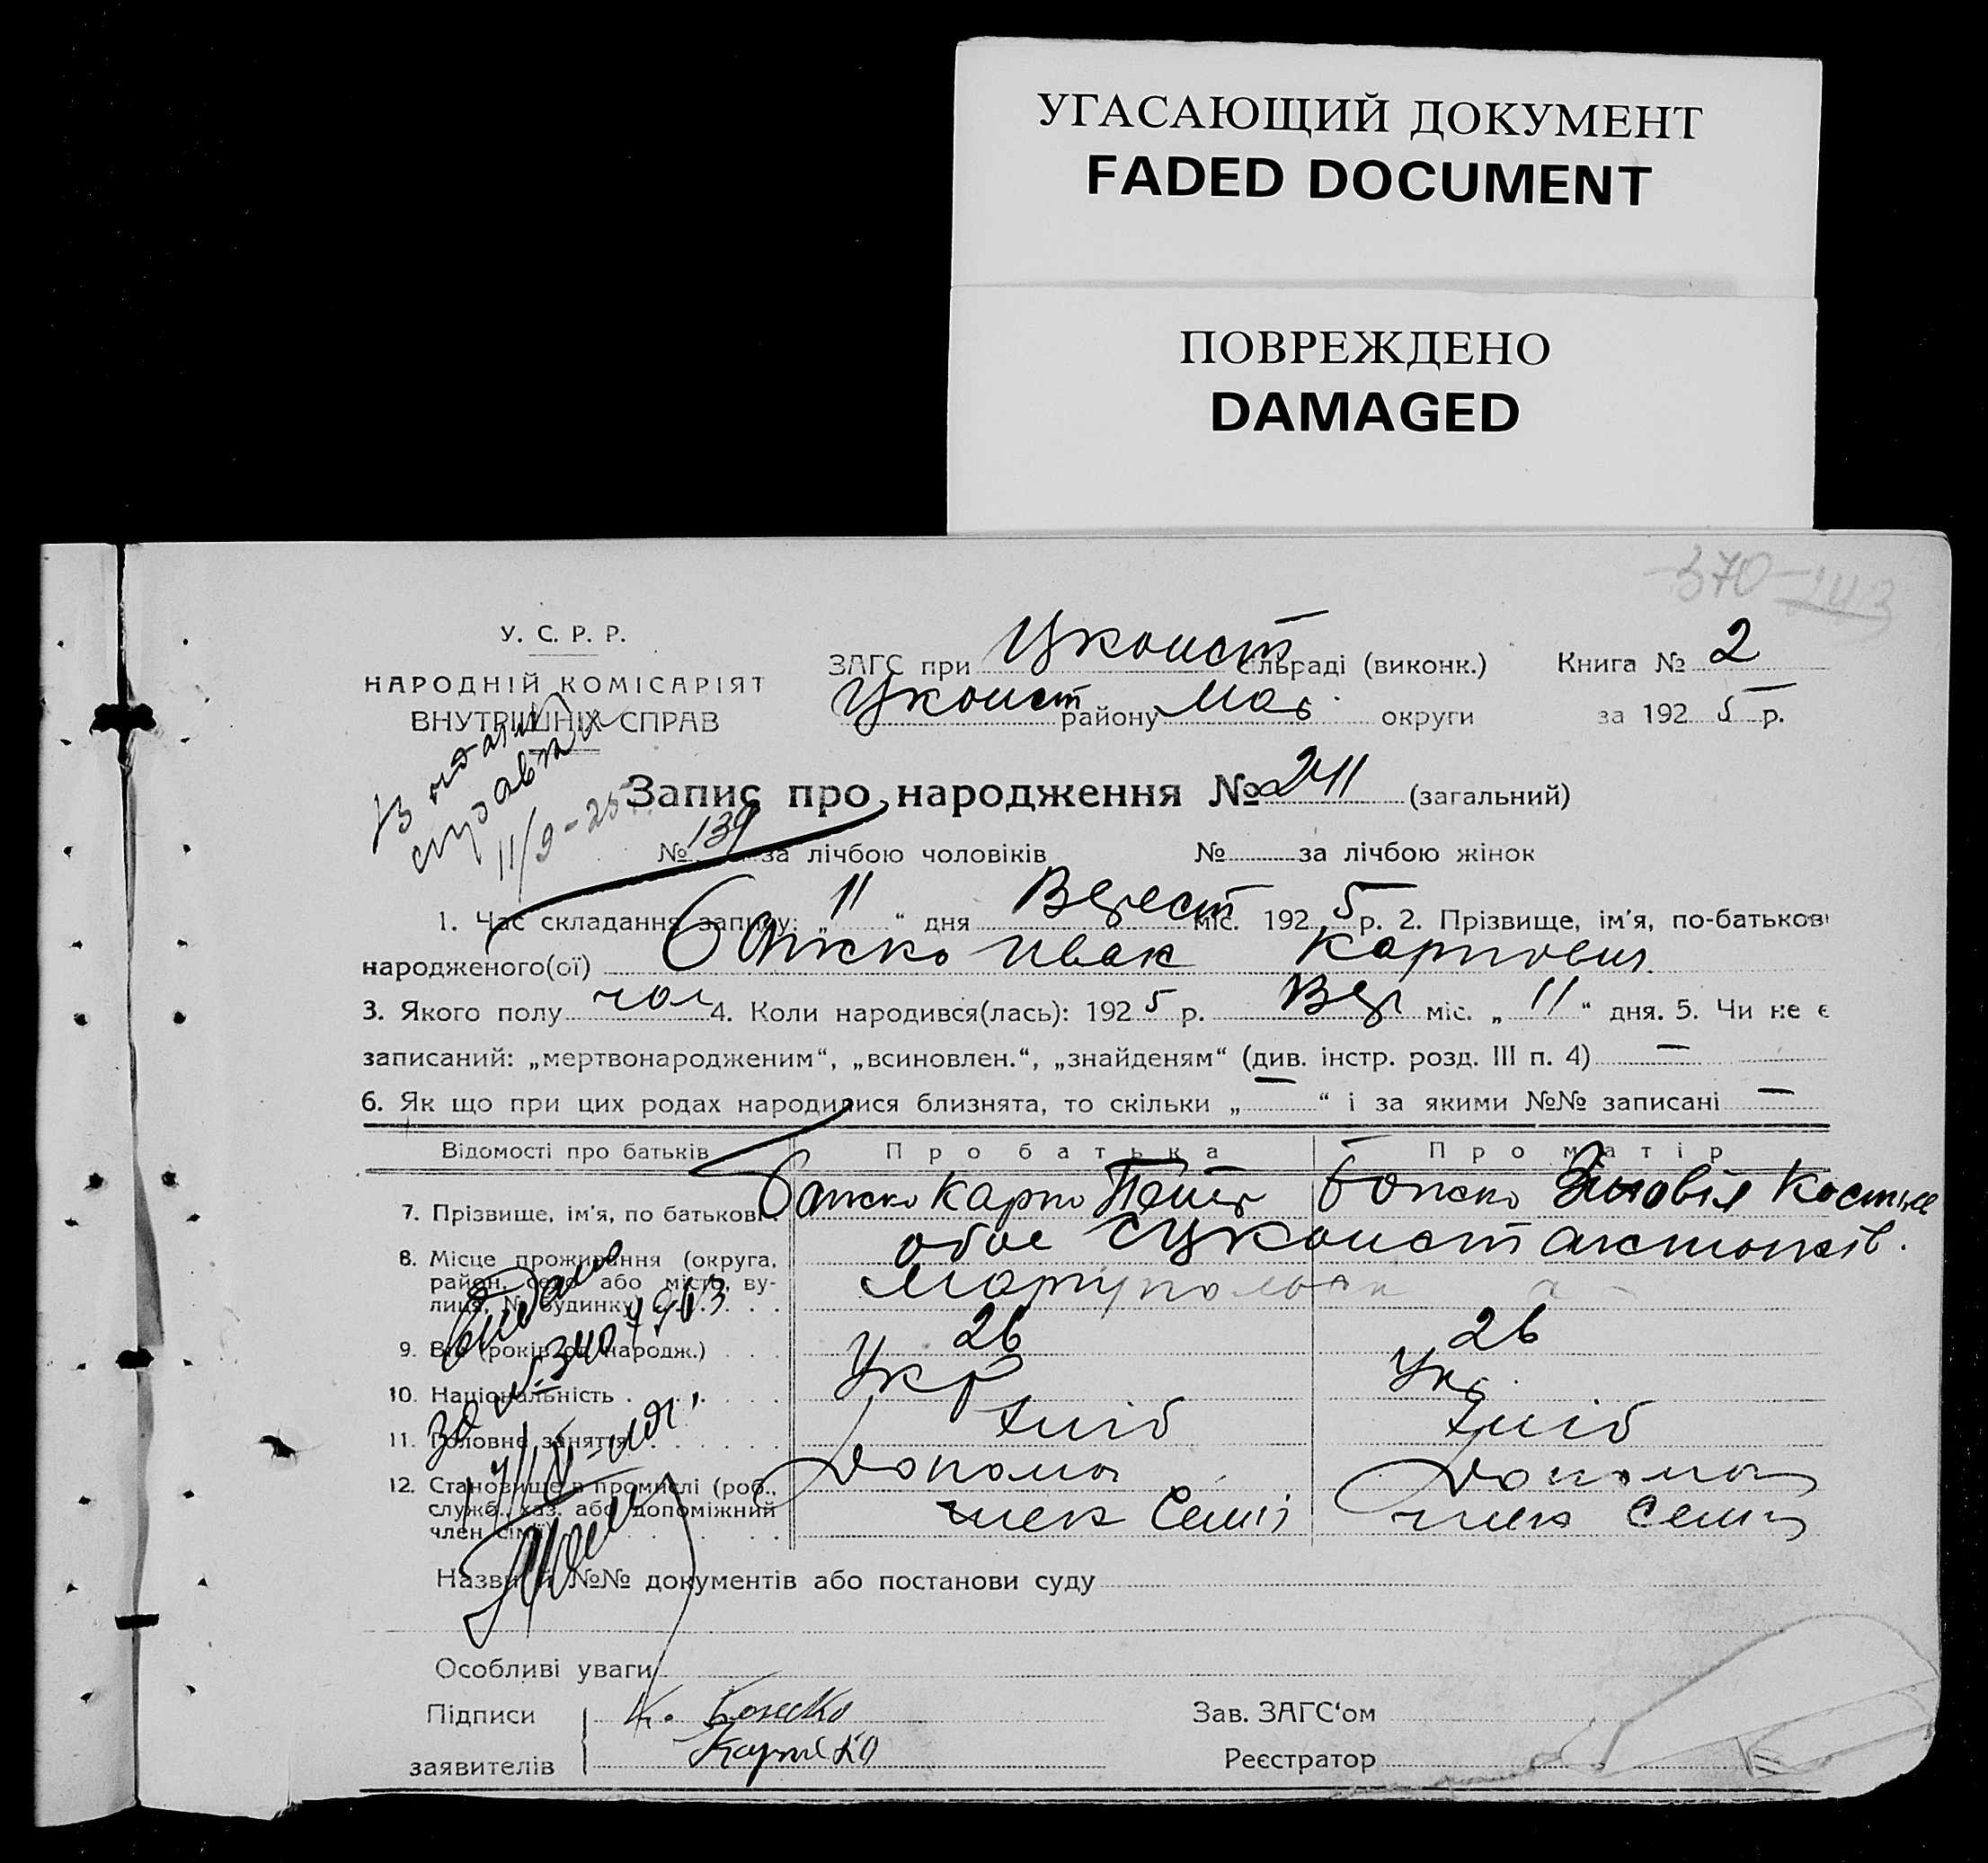 УГАСАЮЩИЙ ДОКУМЕНТ
FADED DOCUMENT
ПОВРЕЖДЕНО
DAMAGED
370 243
У. С. Р. Р.
НАРОДНІЙ КОМІСАРІЯТ
ВНУТРІШНІХ СПРАВ
ЗАГС при Цконст сільраді (виконк.) Книга № 2
Цконст району Мар округи за 1925 р.
11/9-25
Запис про народження № 241 (загальний)
№ 139 за лічбою чоловіків № за лічбою жінок
1. Час складання запису: „11“ дня Верест міс. 1925 р. 2. Прізвище, ім'я, по-батькові
народженого(ої) Божко Иван Карпович
3. Якого полу чол 4. Коли народився(лась): 1925 р. Вер міс. „11“ дня. 5. Чи не є
записаний: „мертвонародженим“, „всиновлен.“, „знайденям“ (див. інстр. розд. III п. 4) —
6. Як що при цих родах народилися близнята, то скільки „—“ і за якими №№ записані —
Відомості про батьків Про батька Про матір
7. Прізвище, ім'я, по батькові Божко Карпо Божко Зиновія
8. Місце проживання (округа, обоє Цконст
район, село або місто, ву-
лиця, № будинку)
9. Вік (років од народж.) 26 26
10. Національність Укр Укр
11. Головне заняття хліб хліб
12. Становище в промислі (роб., Допомо Допомо
служб., хаз. або допоміжний член Семії член Семії
член сімї)
Назви й №№ документів або постанови суду
Особливі уваги
Підписи К. Божко Зав. ЗАГС'ом
заявителів Реєстратор